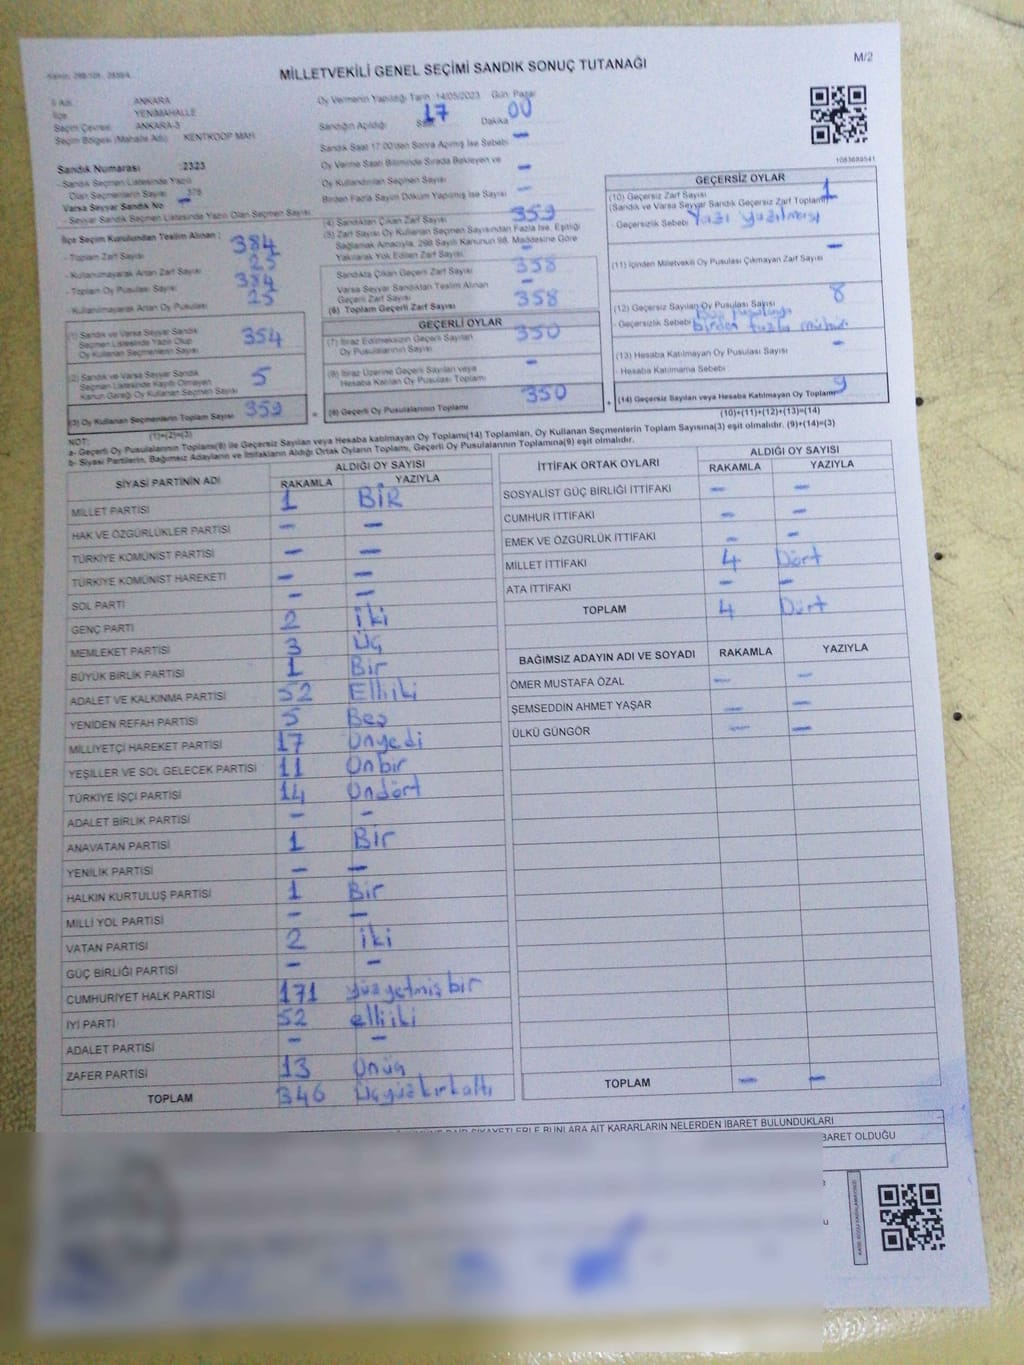 MİLLETVEKİLİ GENEL SEÇİMİ SANDIK SONUÇ TUTANAĞI
M/2
İl Adı ANKARA
İlçe YENİMAHALLE
Seçim Çevresi ANKARA-3
Seçim Bölgesi (Mahalle Adı) KENTKOOP MAH
Sandık Numarası :2323
- Sandık Seçmen Listesinde Yazılı
Olan Seçmenlerin Sayısı 378
Varsa Seyyar Sandık No -
- Seyyar Sandık Seçmen Listesinde Yazılı Olan Seçmen Sayısı
Oy Vermenin Yapıldığı Tarih 14/05/2023 Gün Pazar
Sandığın Açıldığı Saat 17 Dakika 00
Sandık Saat 17:00'den Sonra Açılmış İse Sebebi -
Oy Verme Saati Bitiminde Sırada Bekleyen ve
Oy Kullandırılan Seçmen Sayısı -
Birden Fazla Sayım Döküm Yapılmış İse Sayısı -
1083689541
İlçe Seçim Kurulundan Teslim Alınan :
- Toplam Zarf Sayısı 384
- Kullanılmayarak Artan Zarf Sayısı 25
- Toplam Oy Pusulası Sayısı 384
- Kullanılmayarak Artan Oy Pusulası 25
(1) Sandık ve Varsa Seyyar Sandık
Seçmen Listesinde Yazılı Olup
Oy Kullanan Seçmenlerin Sayısı 354
(2) Sandık ve Varsa Seyyar Sandık
Seçmen Listesinde Kayıtlı Olmayan
Kanun Gereği Oy Kullanan Seçmen Sayısı 5
(3) Oy Kullanan Seçmenlerin Toplam Sayısı 359
(1)+(2)=(3)
(4) Sandıktan Çıkan Zarf Sayısı 359
(5) Zarf Sayısı Oy Kullanan Seçmen Sayısından Fazla İse, Eşitliği
Sağlamak Amacıyla, 298 Sayılı Kanunun 98. Maddesine Göre
Yakılarak Yok Edilen Zarf Sayısı -
Sandıkta Çıkan Geçerli Zarf Sayısı 358
Varsa Seyyar Sandıktan Teslim Alınan
Geçerli Zarf Sayısı -
(6) Toplam Geçerli Zarf Sayısı 358
GEÇERLİ OYLAR
(7) İtiraz Edilmeksizin Geçerli Sayılan
Oy Pusulalarının Sayısı 350
(8) İtiraz Üzerine Geçerli Sayılan veya
Hesaba Katılan Oy Pusulası Toplamı -
(9) Geçerli Oy Pusulalarının Toplamı 350
GEÇERSİZ OYLAR
(10) Geçersiz Zarf Sayısı
(Sandık ve Varsa Seyyar Sandık Geçersiz Zarf Toplamı) 1
- Geçersizlik Sebebi Yazı yazılması
(11) İçinden Milletvekili Oy Pusulası Çıkmayan Zarf Sayısı -
(12) Geçersiz Sayılan Oy Pusulası Sayısı 8
- Geçersizlik Sebebi birden fazla mühür
(13) Hesaba Katılmayan Oy Pusulası Sayısı -
- Hesaba Katılmama Sebebi
(14) Geçersiz Sayılan veya Hesaba Katılmayan Oy Toplamı 9
(10)+(11)+(12)+(13)=(14)
NOT:
a- Geçerli Oy Pusulaları Toplamı(9) ile Geçersiz Sayılan veya Hesaba katılmayan Oy Toplamı(14) Toplamları, Oy Kullanan Seçmenlerin Toplam Sayısına(3) eşit olmalıdır. (9)+(14)=(3)
b- Siyasi Partilerin, Bağımsız Adayların ve İttifakların Aldığı Ortak Oyların Toplamı, Geçerli Oy Pusulalarının Toplamına(9) eşit olmalıdır.
SİYASİ PARTİNİN ADI ALDIĞI OY SAYISI
RAKAMLA YAZIYLA
MİLLET PARTİSİ 1 BİR
HAK VE ÖZGÜRLÜKLER PARTİSİ - -
TÜRKİYE KOMÜNİST PARTİSİ - -
TÜRKİYE KOMÜNİST HAREKETİ - -
SOL PARTİ - -
GENÇ PARTİ 2 iki
MEMLEKET PARTİSİ 3 Üç
BÜYÜK BİRLİK PARTİSİ 1 Bir
ADALET VE KALKINMA PARTİSİ 52 Elliiki
YENİDEN REFAH PARTİSİ 5 Beş
MİLLİYETÇİ HAREKET PARTİSİ 17 Onyedi
YEŞİLLER VE SOL GELECEK PARTİSİ 11 Onbir
TÜRKİYE İŞÇİ PARTİSİ 14 Ondört
ADALET BİRLİK PARTİSİ - -
ANAVATAN PARTİSİ 1 Bir
YENİLİK PARTİSİ - -
HALKIN KURTULUŞ PARTİSİ 1 Bir
MİLLİ YOL PARTİSİ - -
VATAN PARTİSİ 2 iki
GÜÇ BİRLİĞİ PARTİSİ - -
CUMHURİYET HALK PARTİSİ 171 yüzyetmişbir
İYİ PARTİ 52 elliiki
ADALET PARTİSİ - -
ZAFER PARTİSİ 13 Onüç
TOPLAM 346 Üçyüzkırkaltı
İTTİFAK ORTAK OYLARI ALDIĞI OY SAYISI
RAKAMLA YAZIYLA
SOSYALİST GÜÇ BİRLİĞİ İTTİFAKI - -
CUMHUR İTTİFAKI - -
EMEK VE ÖZGÜRLÜK İTTİFAKI - -
MİLLET İTTİFAKI 4 Dört
ATA İTTİFAKI - -
TOPLAM 4 Dört
BAĞIMSIZ ADAYIN ADI VE SOYADI RAKAMLA YAZIYLA
ÖMER MUSTAFA ÖZAL - -
ŞEMSEDDİN AHMET YAŞAR - -
ÜLKÜ GÜNGÖR - -
TOPLAM - -
ŞİKAYETLERLE BUNLARA AİT KARARLARIN NELERDEN İBARET BULUNDUKLARI
BARET OLDUĞU